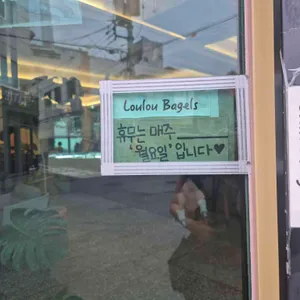 Loulou Bagels
휴무는 매주
'월요일' 입니다♥